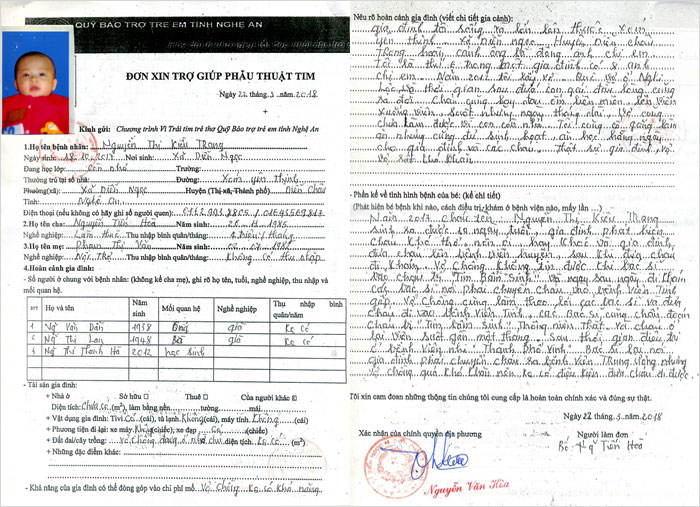 QUỸ BẢO TRỢ TRẺ EM TỈNH NGHỆ AN
ĐƠN XIN TRỢ GIÚP PHẪU THUẬT TIM
Ngày 22 tháng 3 năm 2018
Kính gửi: Chương trình Vì Trái tim trẻ thơ Quỹ Bảo trợ trẻ em tỉnh Nghệ An
1.Họ tên bệnh nhân: Nguyễn Thị Kiều Trang
Ngày sinh: 18.10.2017 Nơi sinh: Xã Diễn Ngọc
Đang học lớp: còn nhỏ Trường:
Thường trú tại số nhà: Đường: Xóm yên Thịnh
Phường(xã): Xã Diễn Ngọc Huyện (Thị xã, Thành phố) Diễn Châu
Tỉnh: Nghệ An
Điện thoại (nếu không có hãy ghi số người quen):
2.Họ tên cha: Nguyễn Tiến Hoà Năm sinh: 1985
Nghề nghiệp: Làm thuê Thu nhập bình quân/tháng: 2 triệu / tháng
3.Họ tên mẹ: Phạm Thị Vân Năm sinh:
Nghề nghiệp: Nội Trợ Thu nhập bình quân/tháng: Không có thu nhập
4.Hoàn cảnh gia đình:
- Số người ở chung với bệnh nhân: (không kể cha mẹ), ghi rõ họ tên, tuổi, nghề nghiệp, thu nhập và
mối quan hệ.
STT Họ và tên Năm sinh Mối quan hệ Nghề nghiệp Thu nhập bình quân/năm
1 Ng Văn 1938 Ông già ko có
2 Ng Thị Lan 1948 Bà già ko có
3 Ng Thị Thanh Hà 2012 học sinh
- Tài sản gia đình:
+ Nhà ở Sở hữu □ Thuê □ Của người khác □
Diện tích: chưa có (m²), làm bằng nền tường mái
+ Vật dụng gia đình: Tivi Có (cái), tủ lạnh Không (cái), máy tính Không (cái)
+ Phương tiện đi lại: xe máy Không (chiếc), xe đạp (chiếc)
+ Đất đai/cây trồng: vợ chồng đang ở nhờ diện tích ko có (m²)
+ Những đặc điểm khác:
- Khả năng của gia đình có thể đóng góp vào chi phí mổ: Vợ Chồng ko có khả năng
Nêu rõ hoàn cảnh gia đình (viết chi tiết gia cảnh):
gia đình tôi sống xa bên thuộc xóm
yên Thịnh Xã Diễn ngọc Huyện Diễn châu
Trong hoàn cảnh ông bà đông anh chị em
tôi là thứ 6 trong một gia đình có 8 anh
chị em. Năm 2012 tôi lấy vợ Quê vợ ở Nghi
lộc và thời gian sau đứa con gái đầu lòng cũng
ra đời. Cháu cũng hay đau ốm liên miên, lên viện
Xuống viện suốt nhưng ngày tháng dài. Vợ
chồng chỉ biết đi với con của mình. Tôi cũng cố gắng làm
gì nhưng cũng đủ sinh hoạt ai học hằng ngày
cho gia đình và các cháu. Thật sự gia đình vợ
rất khó khăn
- Phần kể về tình hình bệnh của bé: (kể chi tiết)
(Phát hiện bệnh khi nào, cách điều trị, khám ở bệnh viện nào, mấy lần …)
Năm 2017 cháu tên: Nguyễn Thị Kiều Trang
sinh ra được 10 ngày tuổi, gia đình phát hiện
cháu khó thở, nên ai hay khóc và gia đình
đưa cháu lên bệnh viện huyện, sau khi đưa cháu
đi khám. Vợ chồng không tin được khi bác sĩ
bảo cháu bị "Tim Bẩm Sinh" và ngay sau ngày đi khám
các bác sĩ nói phải chuyển cháu vào bệnh viện Tỉnh
gấp, Vợ chồng cũng làm theo lời các bác sĩ và đưa
cháu đi vào bệnh viện Tỉnh. Các bác sĩ cũng chẩn đoán
cháu bị "Tim bẩm Sinh". Không niềm thật. Và cháu ở
lại viện suốt gần một tháng. Sau thời gian điều trị
ở bệnh viện nhi "Thành phố Vinh" Bác sĩ lại nói
gia đình phải chuyển cháu ra bệnh viện Trung ương nhưng
vợ chồng quá khó khăn nên ko có điều kiện đưa cháu đi được
Tôi xin cam đoan những thông tin chúng tôi cung cấp là hoàn toàn chính xác và đúng sự thật.
Ngày 22 tháng 3 năm 2018
Xác nhận của chính quyền địa phương
Người làm đơn
Bố Ng Tiến Hoà
Nguyễn Văn Hòa